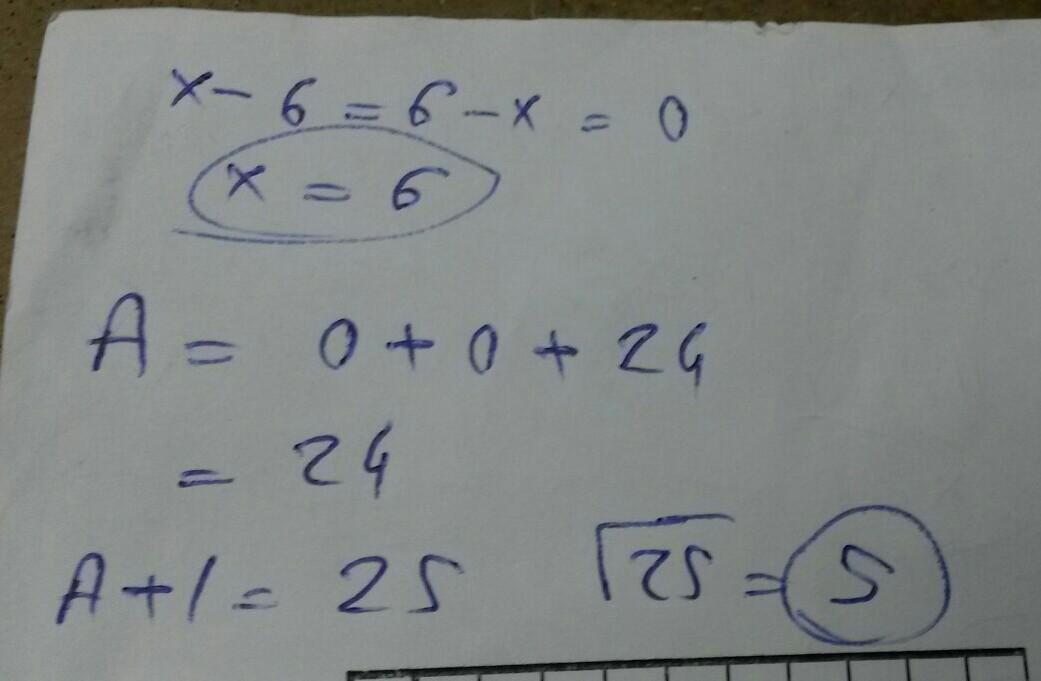 x - 6 = 6 - x = 0
x = 6
A = 0 + 0 + 24
= 24
A + 1 = 25 √25 = 5